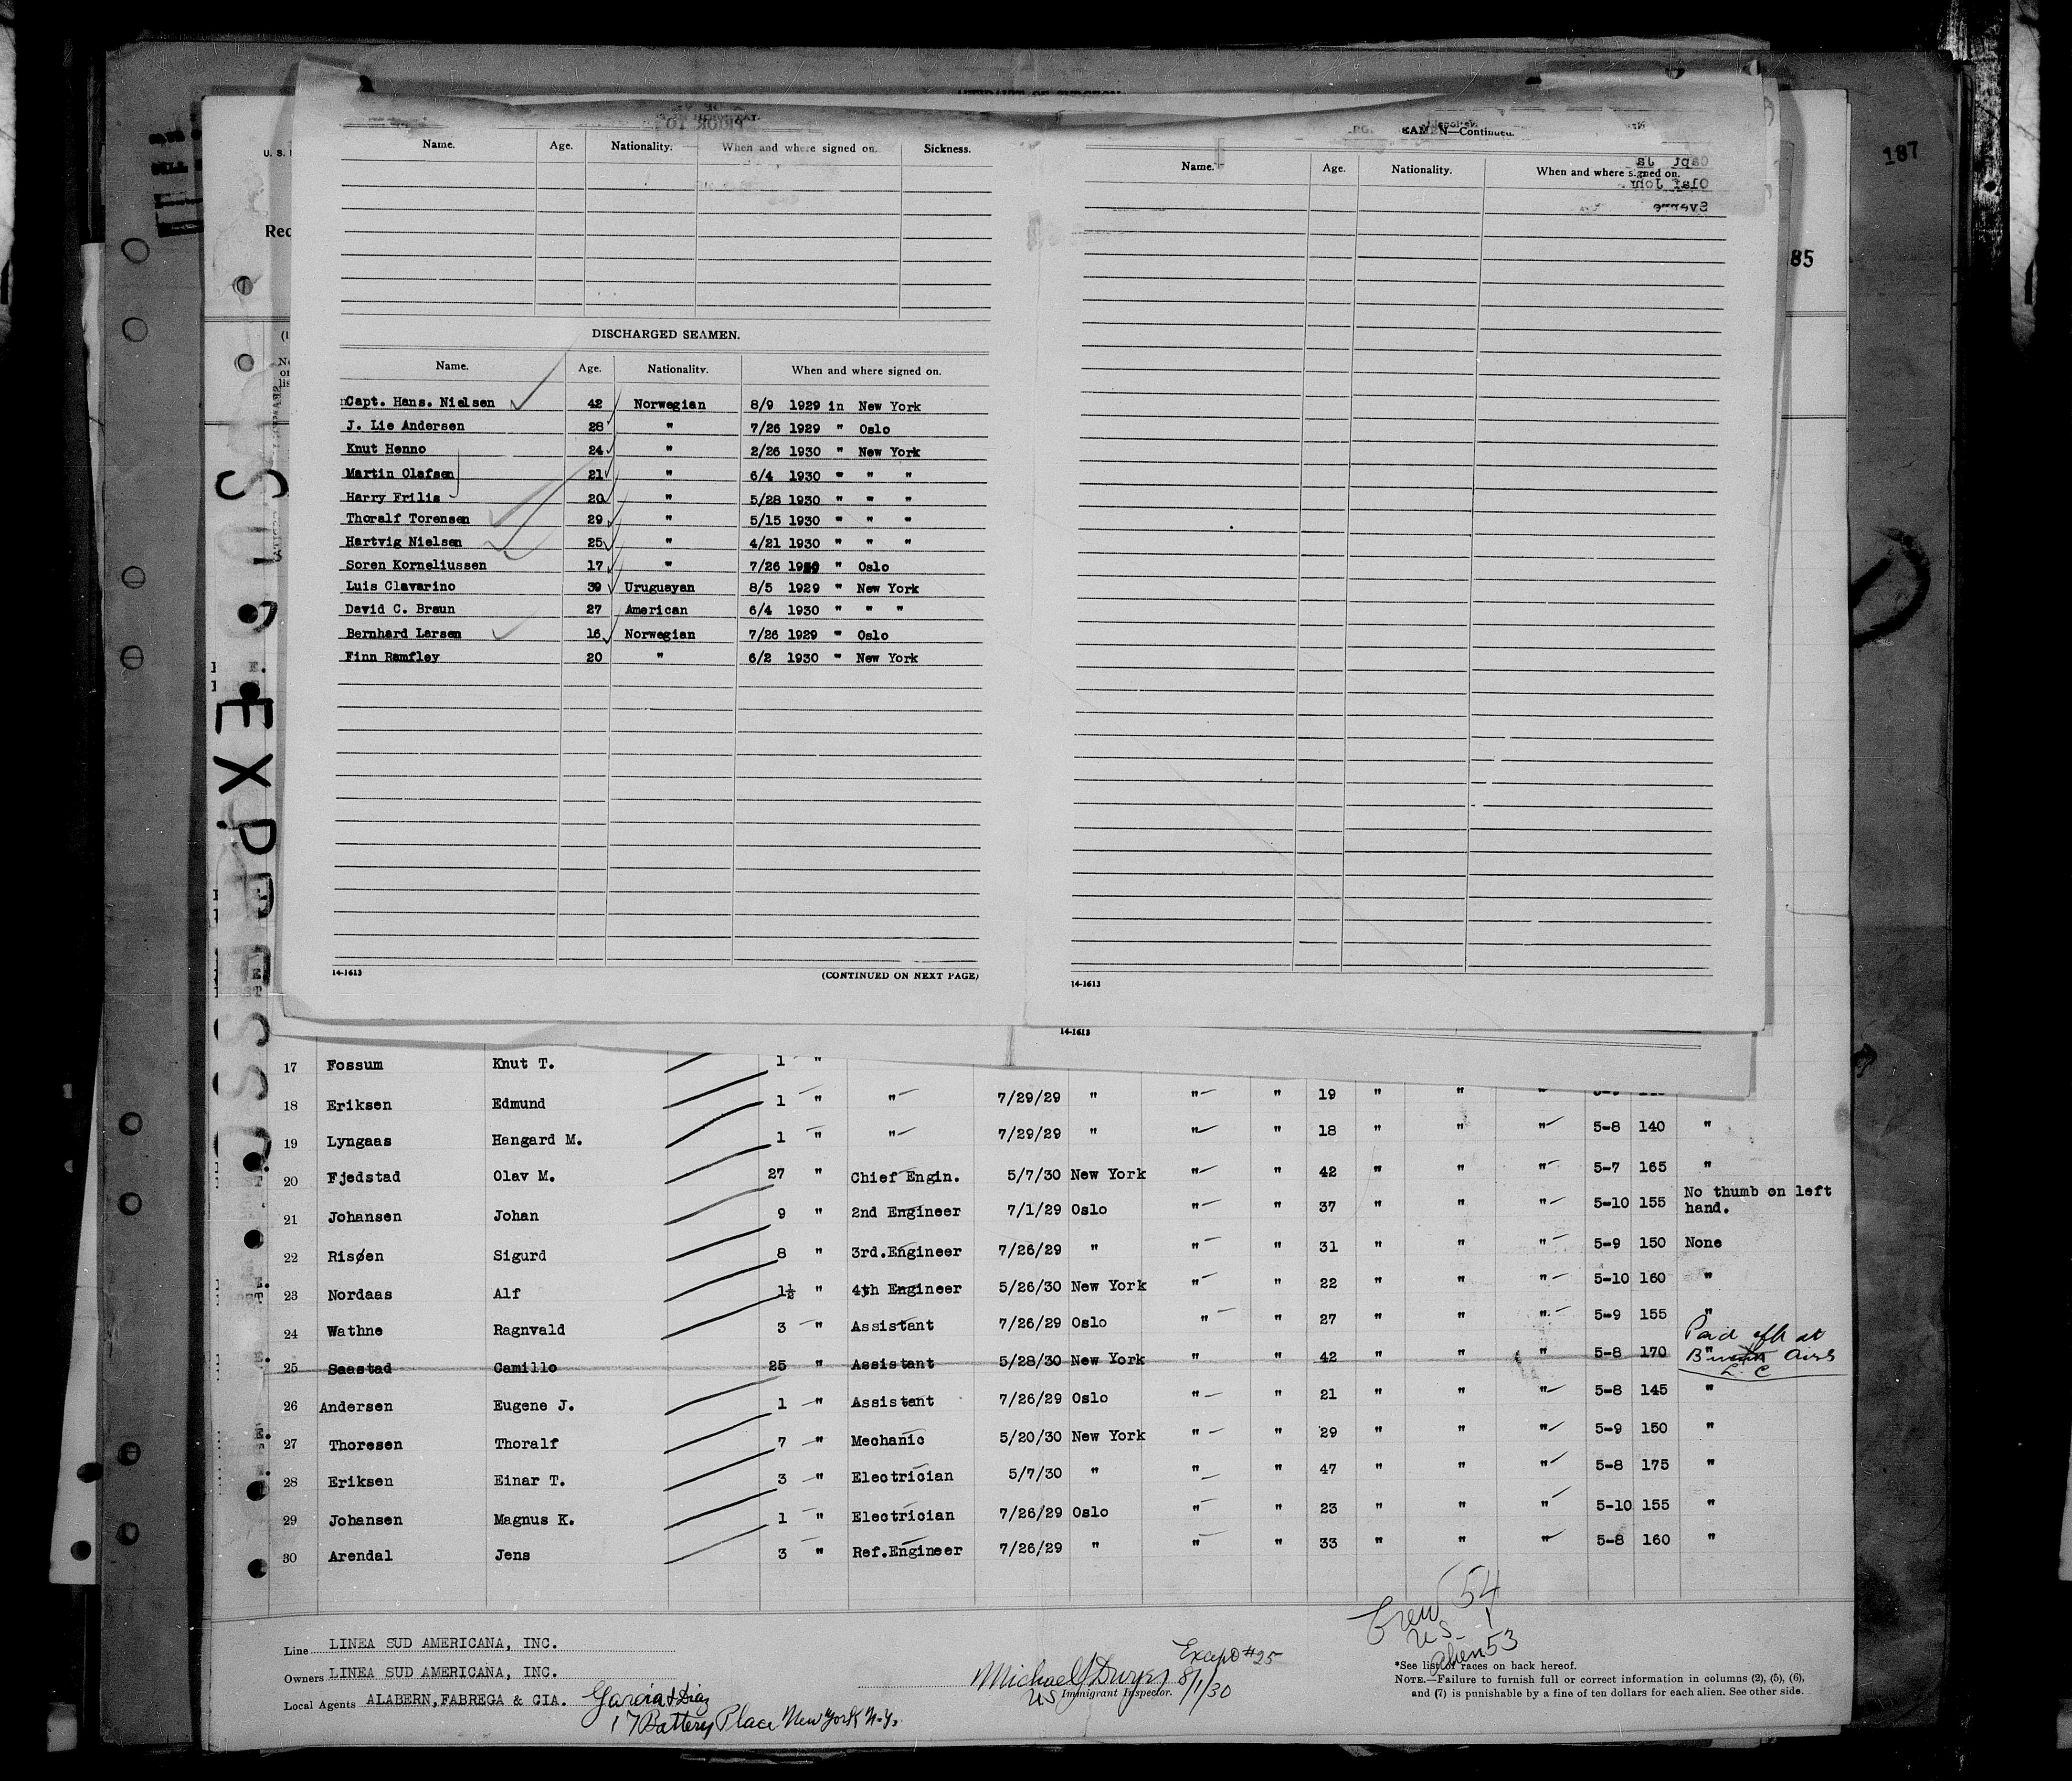 187
85
U. S.
Rec
Name. Age. Nationality. When and where signed on. Sickness.
DISCHARGED SEAMEN.
Name. Age. Nationality. When and where signed on.
Capt. Hans. Nielsen 42 Norwegian 8/9 1929 in New York
J. Lie Andersen 28 " 7/26 1929 " Oslo
Knut Henno 24 " 2/26 1930 " New York
Martin Olafsen 21 " 6/4 1930 " " "
Harry Frilis 20 " 5/28 1930 " " "
Thoralf Torensen 29 " 5/15 1930 " " "
Hartvig Nielsen 25 " 4/21 1930 " " "
Soren Korneliussen 17 " 7/26 " Oslo
Luis Clavarino 39 Uruguayan 8/5 1929 " New York
David C. Braun 27 American 6/4 1930 " " "
Bernhard Larsen 16 Norwegian 7/26 1929 " Oslo
Finn Ramfley 20 " 6/2 1930 " New York
14-1613 (CONTINUED ON NEXT PAGE)
SEAMEN—Continued.
Name. Age. Nationality. When and where signed on.
14-1613
14-1613
17 Fossum Knut T. 1 "
18 Eriksen Edmund 1 " " 7/29/29 " " " 19 " " "
19 Lyngaas Hangard M. 1 " " 7/29/29 " " " 18 " " " 5-8 140 "
20 Fjedstad Olav M. 27 " Chief Engin. 5/7/30 New York " " 42 " " " 5-7 165 "
21 Johansen Johan 9 " 2nd Engineer 7/1/29 Oslo " " 37 " " " 5-10 155 No thumb on left hand.
22 Risøen Sigurd 8 " 3rd.Engineer 7/26/29 " " " 31 " " " 5-9 150 None
23 Nordaas Alf 1½ " 4th Engineer 5/26/30 New York " " 22 " " " 5-10 160 "
24 Wathne Ragnvald 3 " Assistant 7/26/29 Oslo " " 27 " " " 5-9 155 "
25 Saastad Camillo 25 " Assistant 5/28/30 New York " " 42 " " " 5-8 170 "
Paid off at
Aires
26 Andersen Eugene J. 1 " Assistant 7/26/29 Oslo " " 21 " " " 5-8 145 "
27 Thoresen Thoralf 7 " Mechanic 5/20/30 New York " " 29 " " " 5-9 150 "
28 Eriksen Einar T. 3 " Electrician 5/7/30 " " " 47 " " " 5-8 175 "
29 Johansen Magnus K. 1 " Electrician 7/26/29 Oslo " " 23 " " " 5-10 155 "
30 Arendal Jens 3 " Ref.Engineer 7/26/29 " " " 33 " " " 5-8 160 "
Crew 54
US. 1
alien 53
Line LINEA SUD AMERICANA, INC.
Owners LINEA SUD AMERICANA, INC.
Local Agents ALABERN, FABREGA & CIA. Garcia & Diaz
17 Battery Place New York N.Y.
Except #25
Michael J Dwyer 8/1/30
US Immigrant Inspector.
*See list of races on back hereof.
NOTE.—Failure to furnish full or correct information in columns (2), (5), (6),
and (7) is punishable by a fine of ten dollars for each alien. See other side.